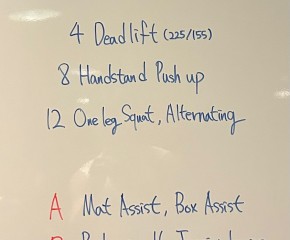 4 Deadlift (225/155)
8 Handstand Push up
12 One leg Squat, Alternating
A Mat Assist, Box Assist